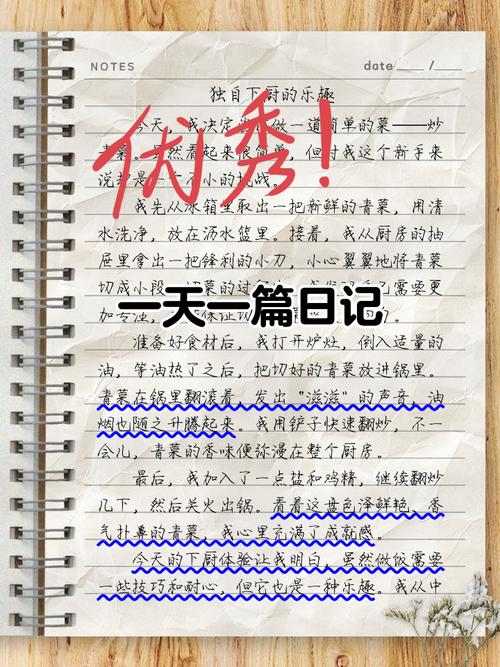 NOTES
date / 
独自下厨的乐趣
今天,我决定做一道简单的菜——炒
青菜。虽然看起来很简单,但对我这个新手来
说却是一个不小的挑战。
优秀!
我先从冰箱里取出一把新鲜的青菜,用清
水洗净,放在沥水篮里。接着,我从厨房的抽
屉里拿出一把锋利的小刀,小心翼翼地将青菜
切成小段。需要更
一天一篇日记
加专注,
准备好食材后,我打开炉灶,倒入适量的
油,等油热了之后,把切好的青菜放进锅里。
青菜在锅里翻滚着,发出“滋滋”的声音,油
烟也随之升腾起来。我用铲子快速翻炒,不一
会儿,青菜的香味便弥漫在整个厨房。
最后,我加入了一点盐和鸡精,继续翻炒
几下,然后关火出锅。看着这盘色泽鲜艳、香
气扑鼻的青菜,我心里充满了成就感。
今天的下厨体验让我明白,虽然做饭需要
一些技巧和耐心,但它也是一种乐趣。我从中